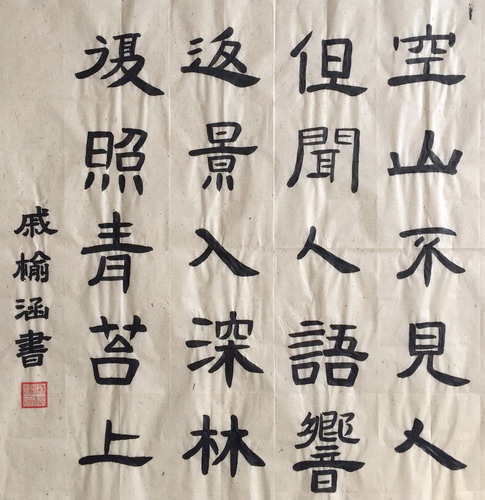 空山不見人
但聞人語響
返景入深林
復照青苔上
戚榆涵書